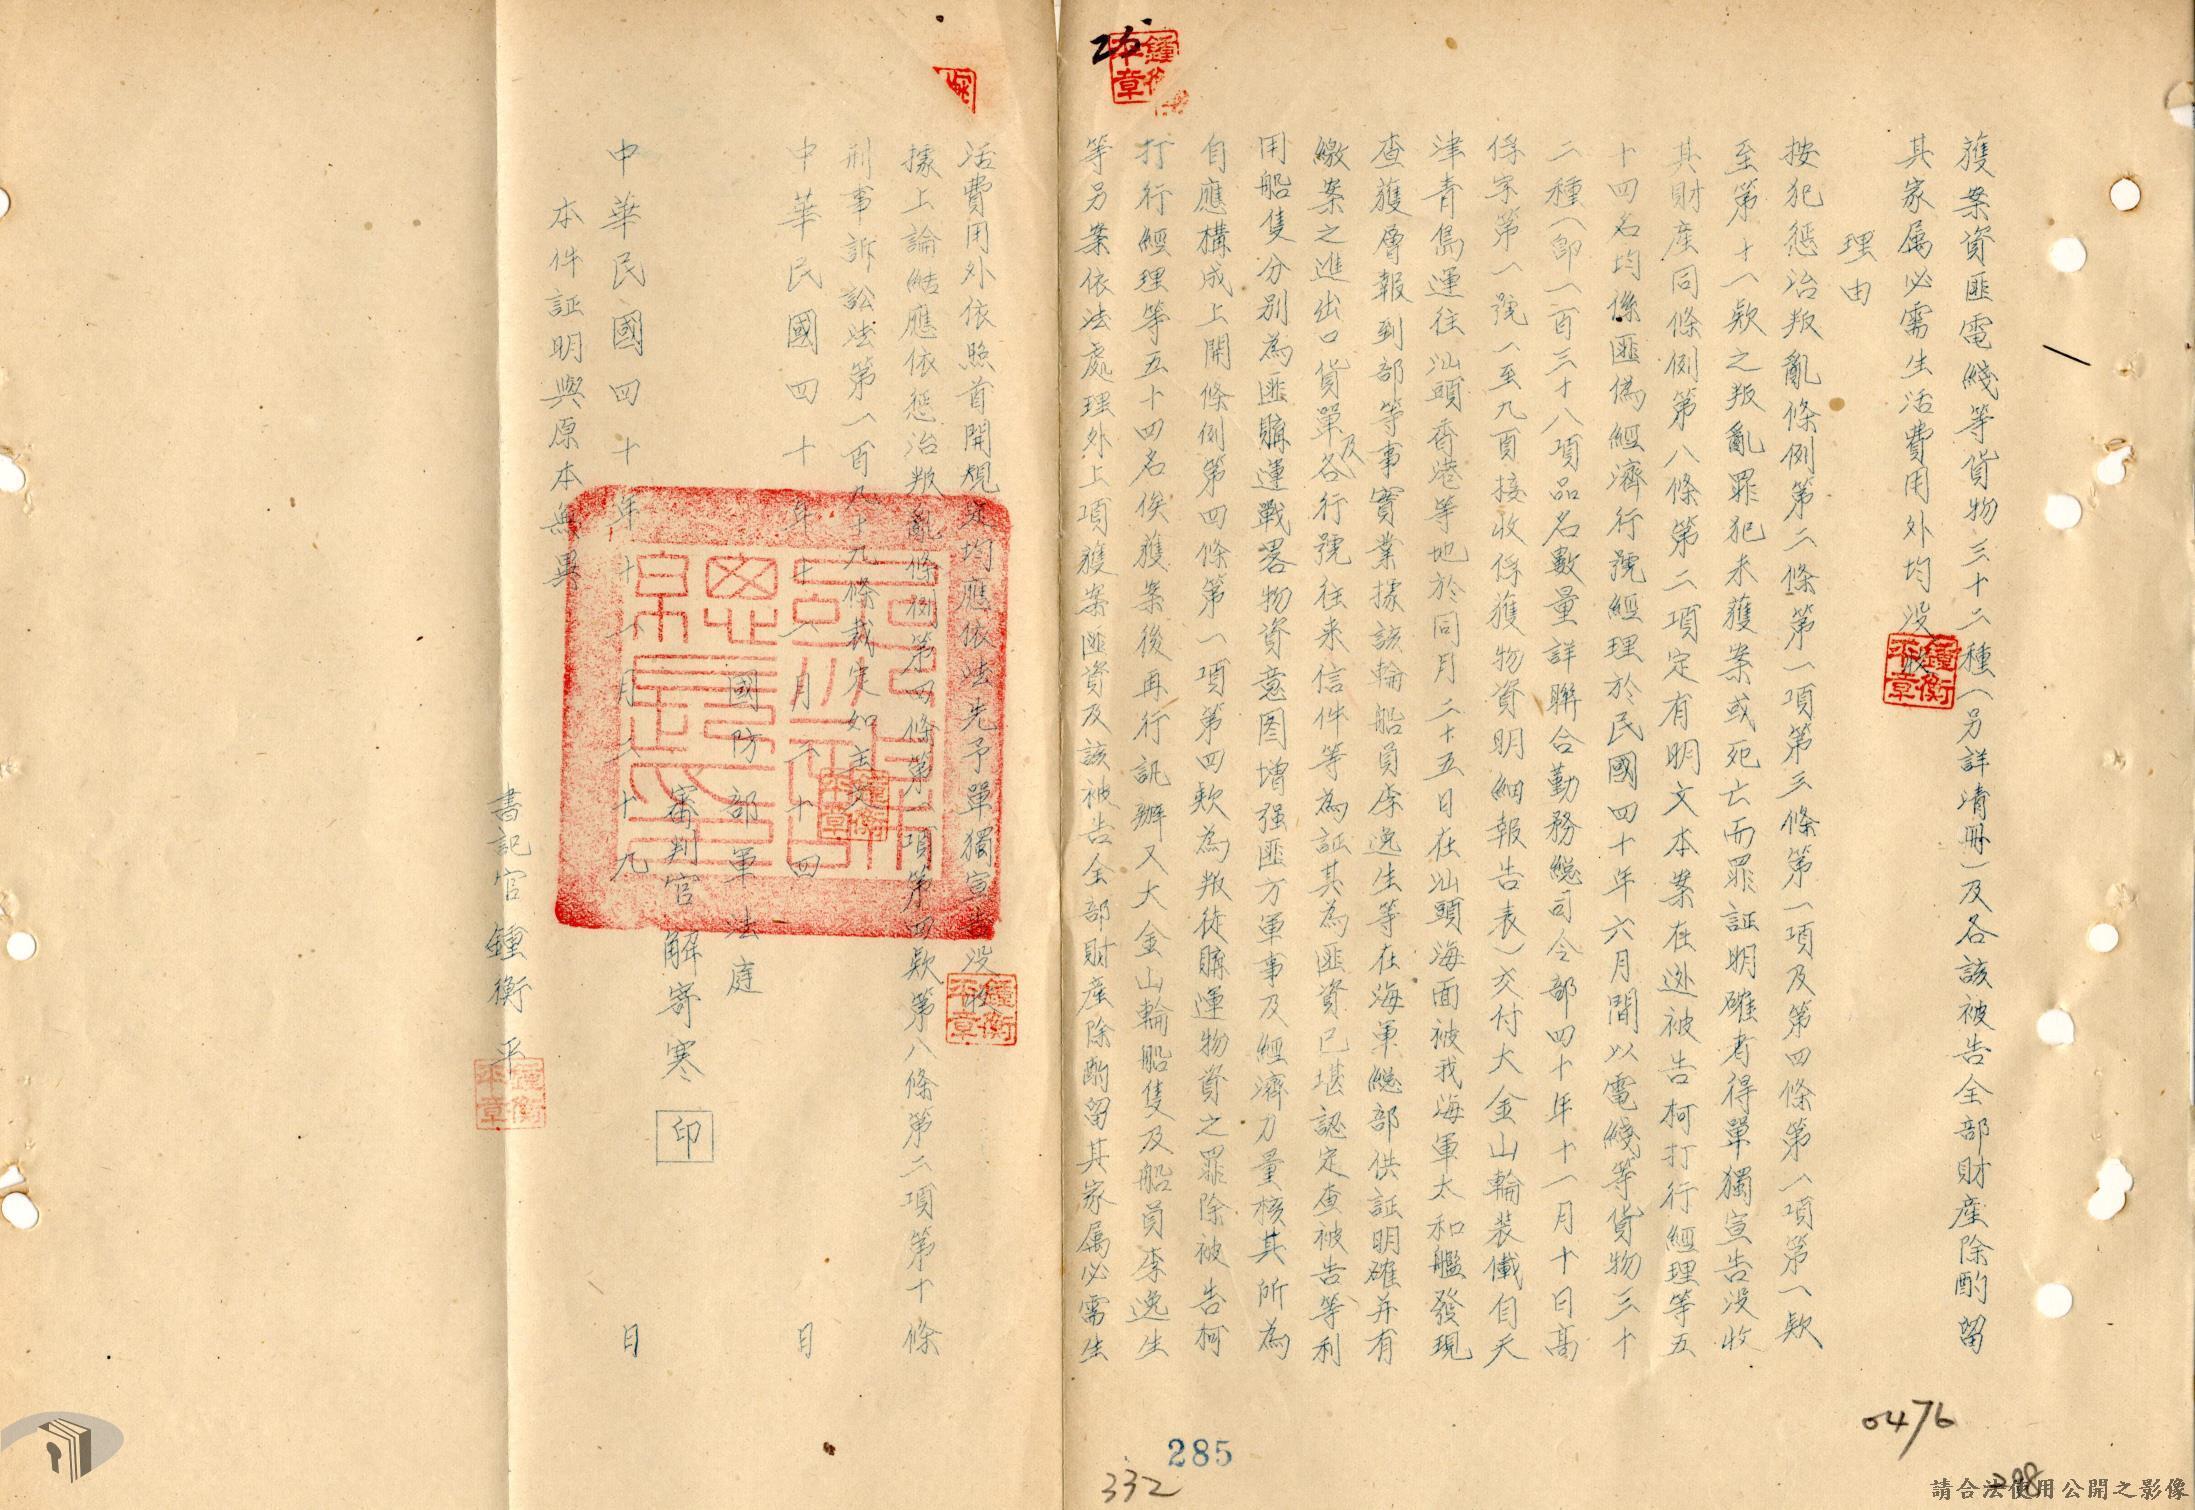 獲案資匪電綫等貨物三十二種(另詳清冊)及各該被告全部財產除酌留
其家屬必需生活費用外均沒收
理由
按犯懲治叛亂條例第二條第一項第三條第一項及第四條第一項第一款
至第十一款之叛亂罪犯未獲案或死亡而罪証明確者得單獨宣告沒收
其財產同條例第八條第二項定有明文本案在逃被告柯打行經理等五
十四名均係匪偽經濟行號經理於民國四十年六月間以電綫等貨物三十
二種(卽一百三十八項品名數量詳聯合勤務總司令部四十年十一月十日高
俘字第一號一至九頁接收俘獲物資明細報告表)交付大金山輪裝儎自天
津青島運往汕頭香港等地於同月二十五日在汕頭海面被我海軍太和艦發現
查獲層報到部等事實業據該輪船員李逸生等在海軍總部供証明確并有
繳案之進出口貨單及各行號往来信件等為証其為匪資已堪認定查被告等利
用船隻分別為匪購運戰畧物資意图增强匪方軍事及經濟力量核其所為
自應構成上開條例第四條第一項第四款為叛徒購運物資之罪除被告柯
打行經理等五十四名俟獲案後再行訊辦又大金山輪船隻及船員李逸生
等另案依法處理外上項獲案匪資及該被告全部財產除酌留其家屬必需生
活費用外依照首開規定均應依法先予單獨宣告沒收
據上論結應依懲治叛亂條例第四條第一項第四款第八條第二項第十條
刑事訴訟法第一百九十九條裁定如主文
中華民國四十年十一月二十四日
國防部軍法庭
審判官解寄寒 印
中華民國四十年十一月二十九日
本件証明與原本無異
書記官鍾衡平
鍾衡平章
鍾衡平章
鍾衡平章
鍾衡平章
鍾衡平章
0476
285
332
298
請合法使用公開之影像